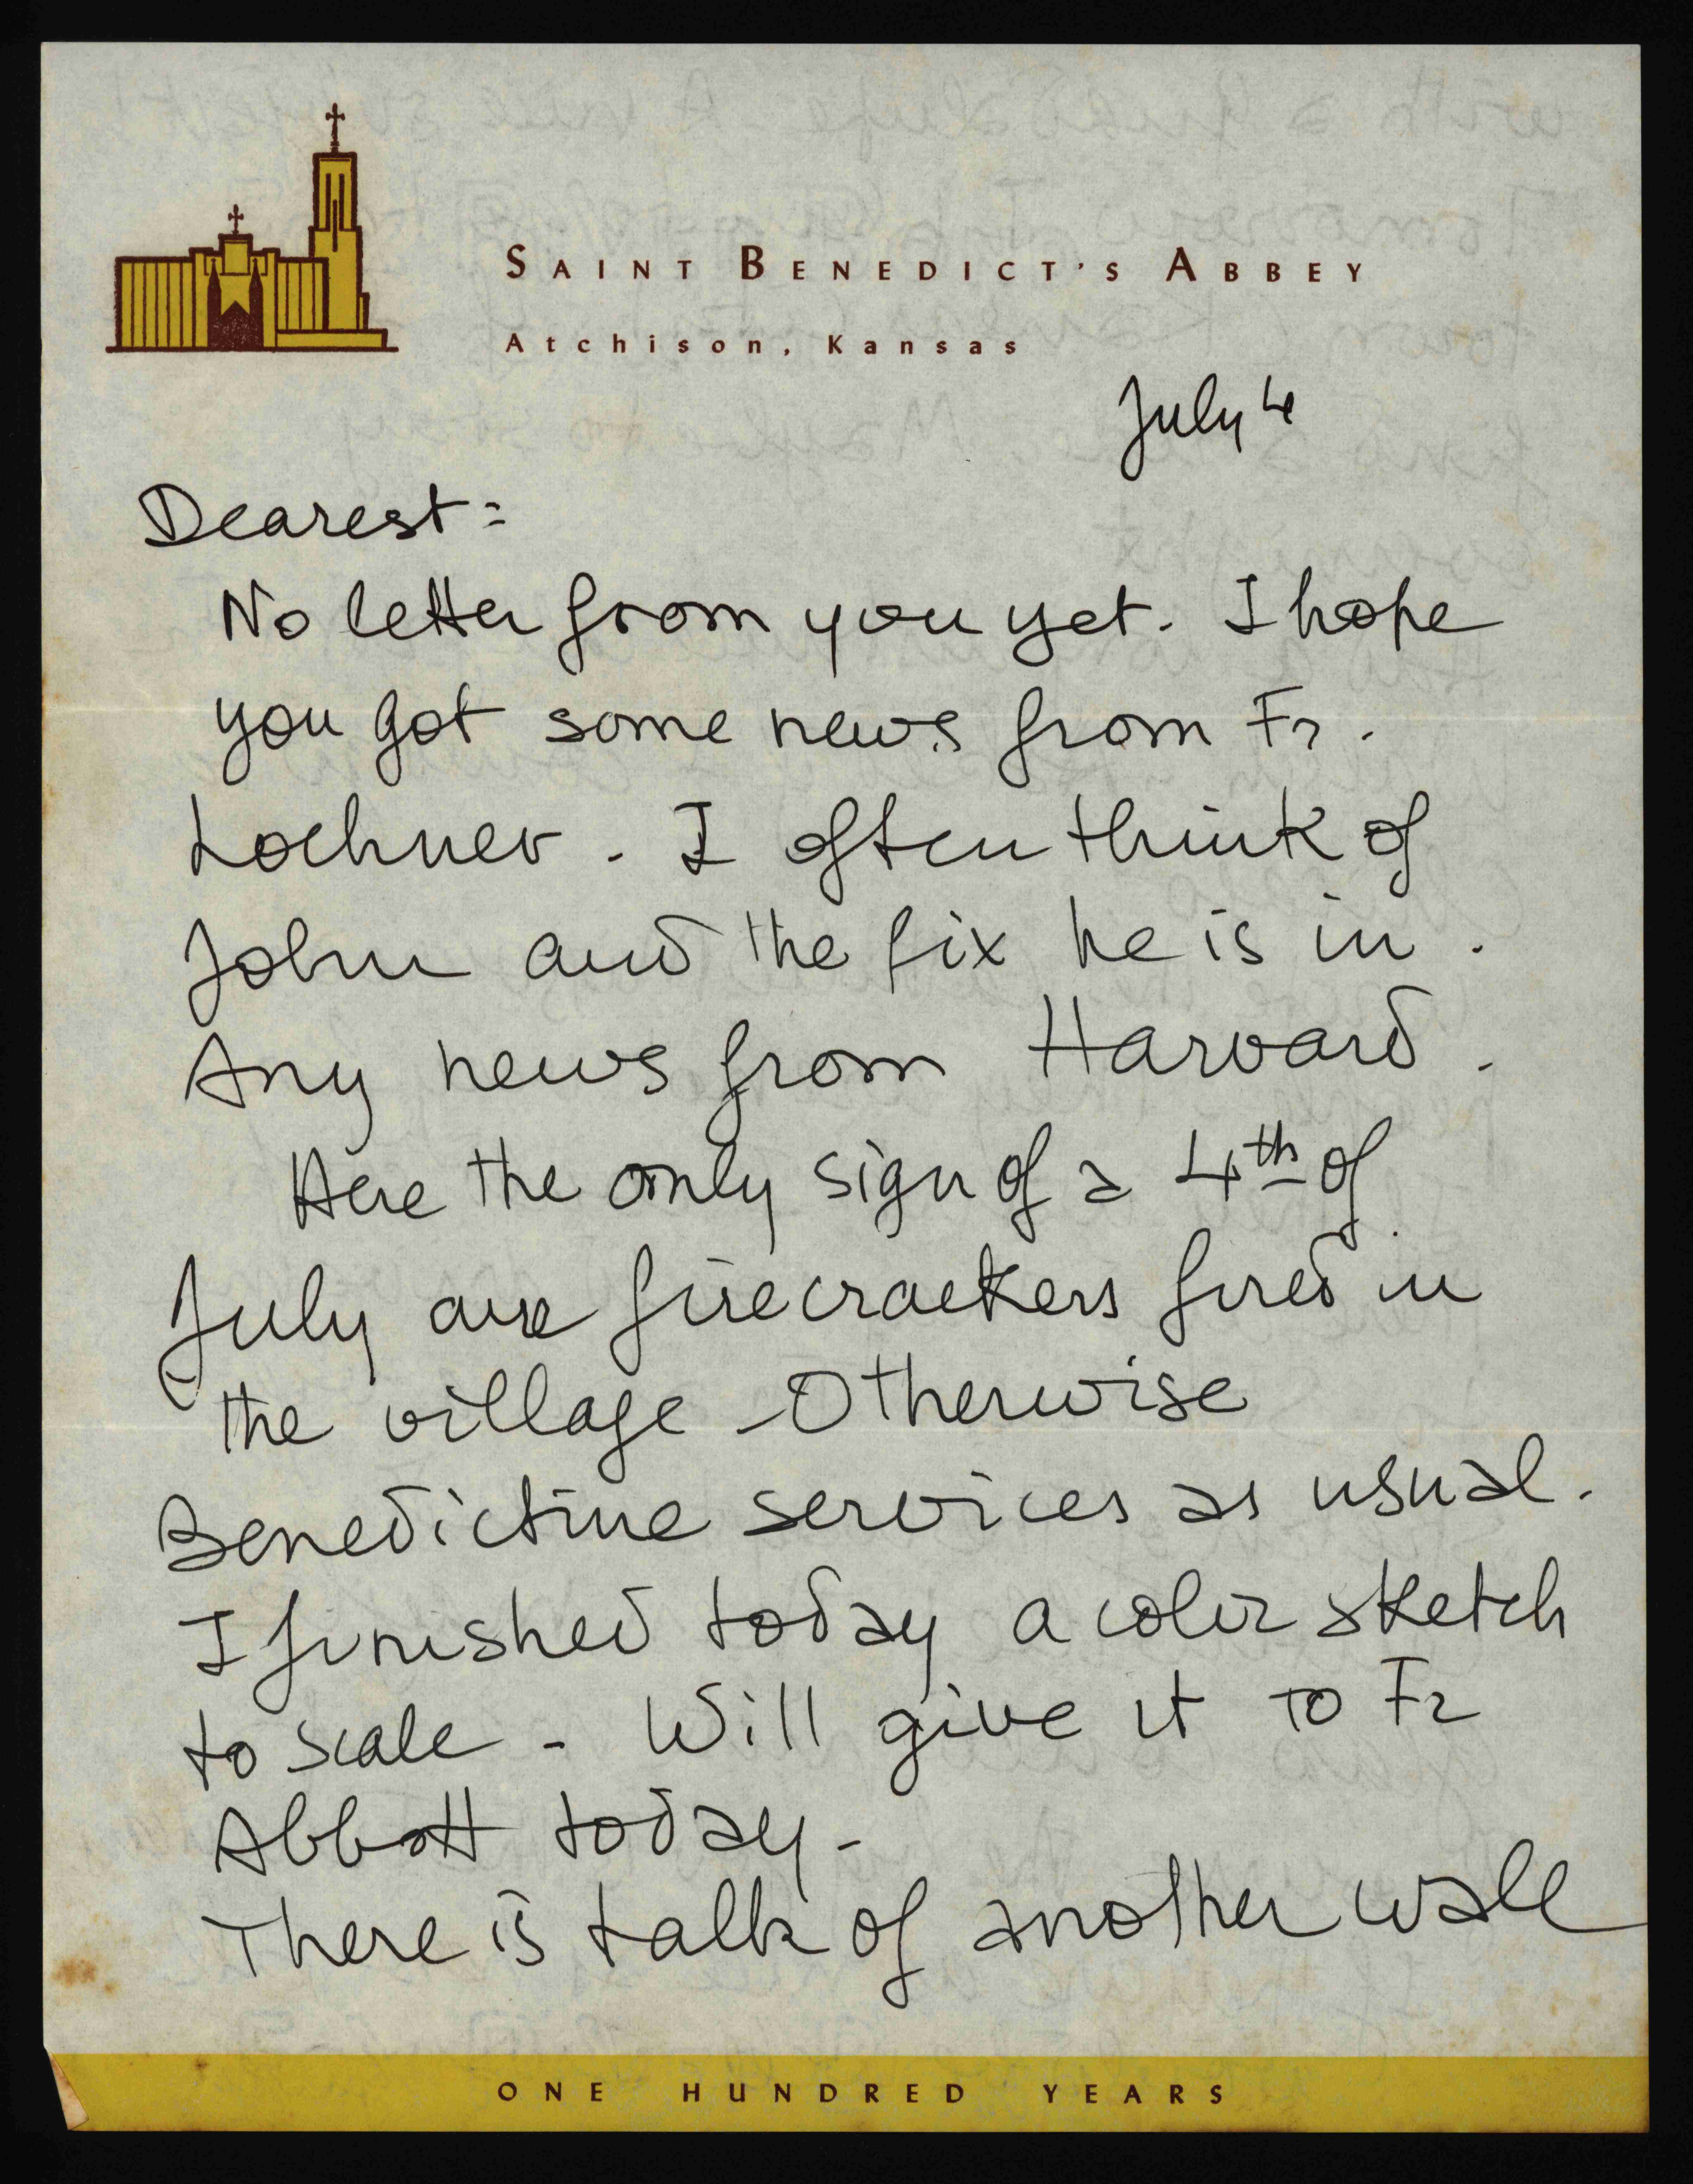 SAINT BENEDICT'S ABBEY
Atchison, Kansas
July 4
Dearest:
No letter from you yet. I hope
you got some news from Fr.
Lochner. I often think of
John and the fix he is in.
Any news from Harvard.
Here the only sign of a 4th of
July are firecrackers fired in
the village - Otherwise
Benedictine services as usual.
I finished today a color sketch
to scale - Will give it to Fr
Abbott today -
There is talk of another wall
ONE HUNDRED YEARS